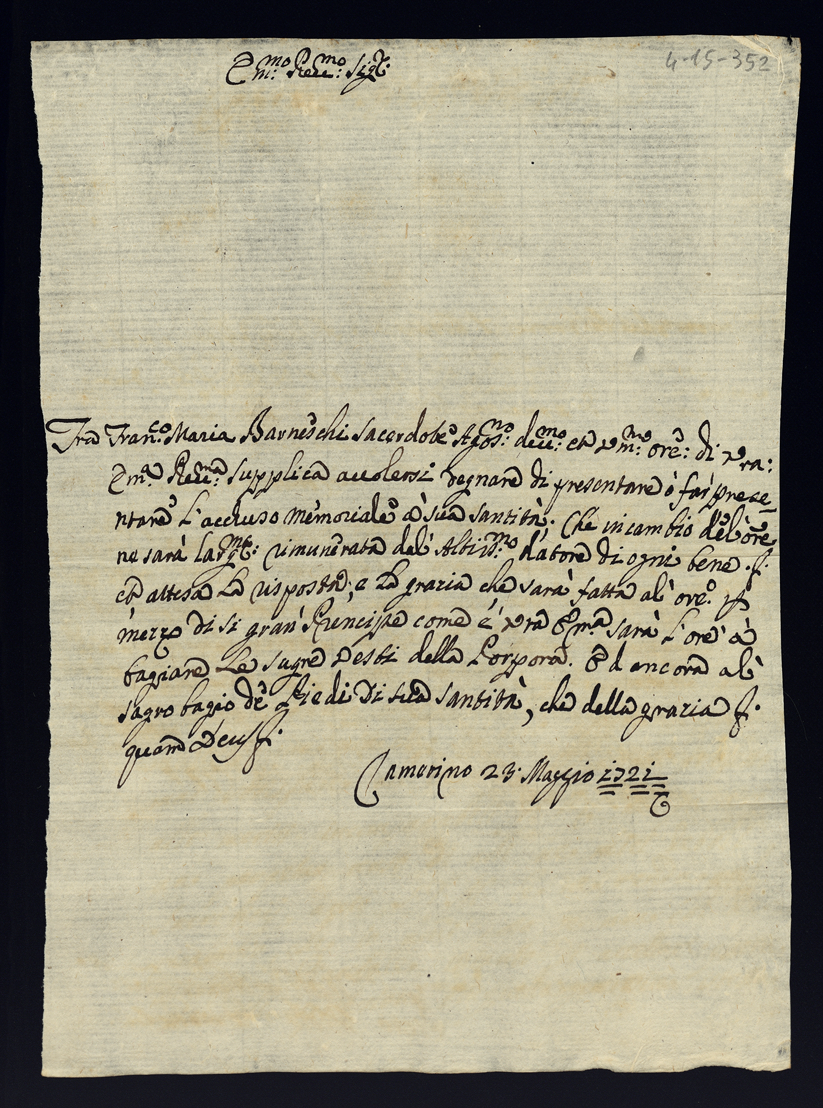 Em:mo Reue:mo Sig:r
4-15-352
Fra Fran:co Maria Barneschi sacerdote Agos:no deue:mo et um:mo ore: di vra:
Em:a Reue:ma supplica auolersi degnare di presentare ò far prese-
ntare l'accluso memoriale à sua santità. Che in cambio del'ore
ne sarà larg:te: rimunerata del'Altiss:mo datore di ogni bene .f.
et attesa la risposta, e la grazia che sarà fatta al'ore. p
mezzo di si gran Principe come é vra Em:a sarà l'ore à
bagiare le sagre vesti della Porpora. Ed ancora al
sagro bagio de Piedi di sua santità, che della grazia f.
quam Deus f.
Camerino 23: Maggio 1721